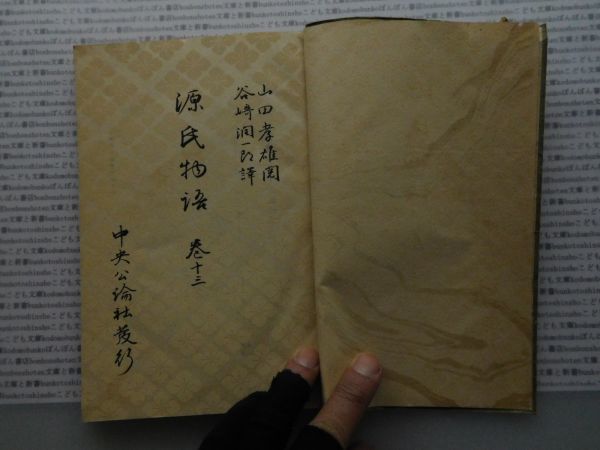 山田孝雄閲
谷崎潤一郎譯
源氏物語 卷十三
中央公論社發行